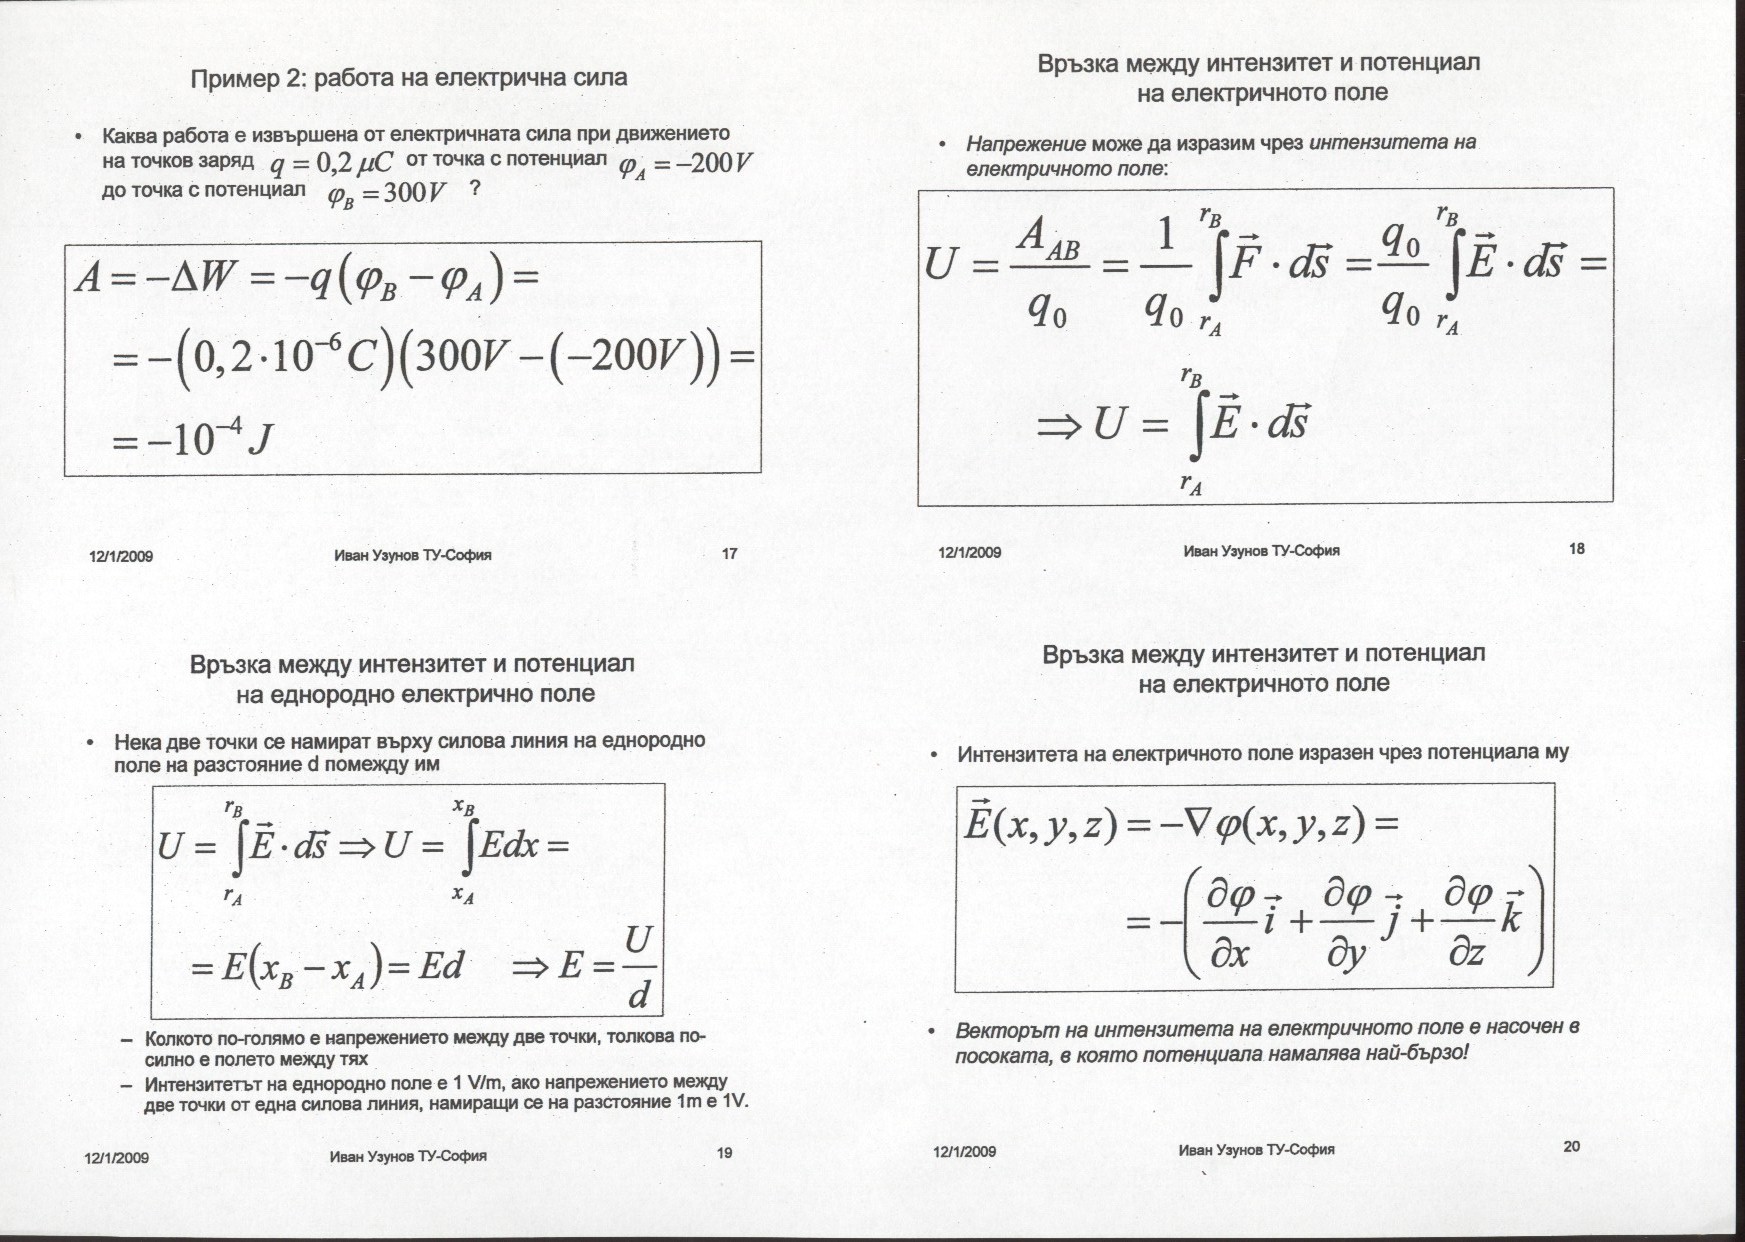 Пример 2: работа на електрична сила
• Каква работа е извършена от електричната сила при движението
на точков заряд q = 0,2 μC от точка с потенциал φ_A = −200V
до точка с потенциал φ_B = 300V ?
A = −ΔW = −q(φ_B − φ_A) =
= −(0,2·10⁻⁶ C)(300V − (−200V)) =
= −10⁻⁴ J
12/1/2009 Иван Узунов ТУ-София 17
Връзка между интензитет и потенциал
на електричното поле
• Напрежение може да изразим чрез интензитета на
електричното поле:
U = A_AB / q₀ = 1/q₀ ∫_{r_A}^{r_B} F⃗ · ds⃗ = q₀/q₀ ∫_{r_A}^{r_B} E⃗ · ds⃗ =
⇒ U = ∫_{r_A}^{r_B} E⃗ · ds⃗
12/1/2009 Иван Узунов ТУ-София 18
Връзка между интензитет и потенциал
на еднородно електрично поле
• Нека две точки се намират върху силова линия на еднородно
поле на разстояние d помежду им
U = ∫_{r_A}^{r_B} E⃗ · ds⃗ ⇒ U = ∫_{x_A}^{x_B} Edx =
= E(x_B − x_A) = Ed ⇒ E = U/d
– Колкото по-голямо е напрежението между две точки, толкова по-
силно е полето между тях
– Интензитетът на еднородно поле е 1 V/m, ако напрежението между
две точки от една силова линия, намиращи се на разстояние 1m е 1V.
12/1/2009 Иван Узунов ТУ-София 19
Връзка между интензитет и потенциал
на електричното поле
• Интензитета на електричното поле изразен чрез потенциала му
E⃗(x, y, z) = −∇φ(x, y, z) =
= −(∂φ/∂x i⃗ + ∂φ/∂y j⃗ + ∂φ/∂z k⃗)
• Векторът на интензитета на електричното поле е насочен в
посоката, в която потенциала намалява най-бързо!
12/1/2009 Иван Узунов ТУ-София 20